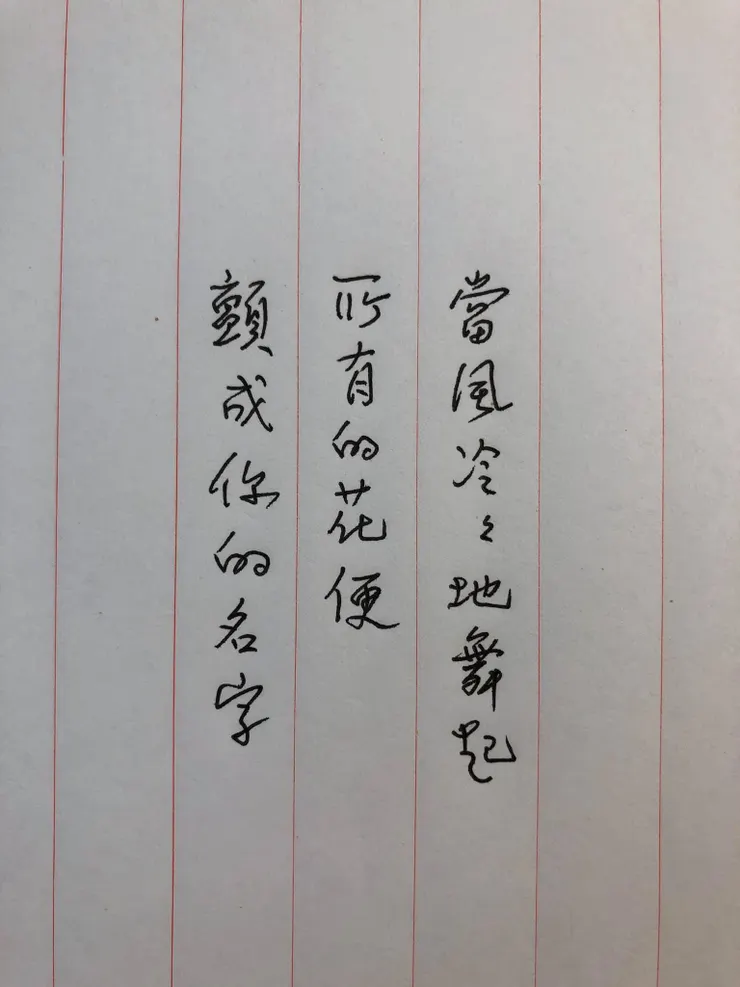 當風冷々地舞起
所有的花便
顫成你的名字